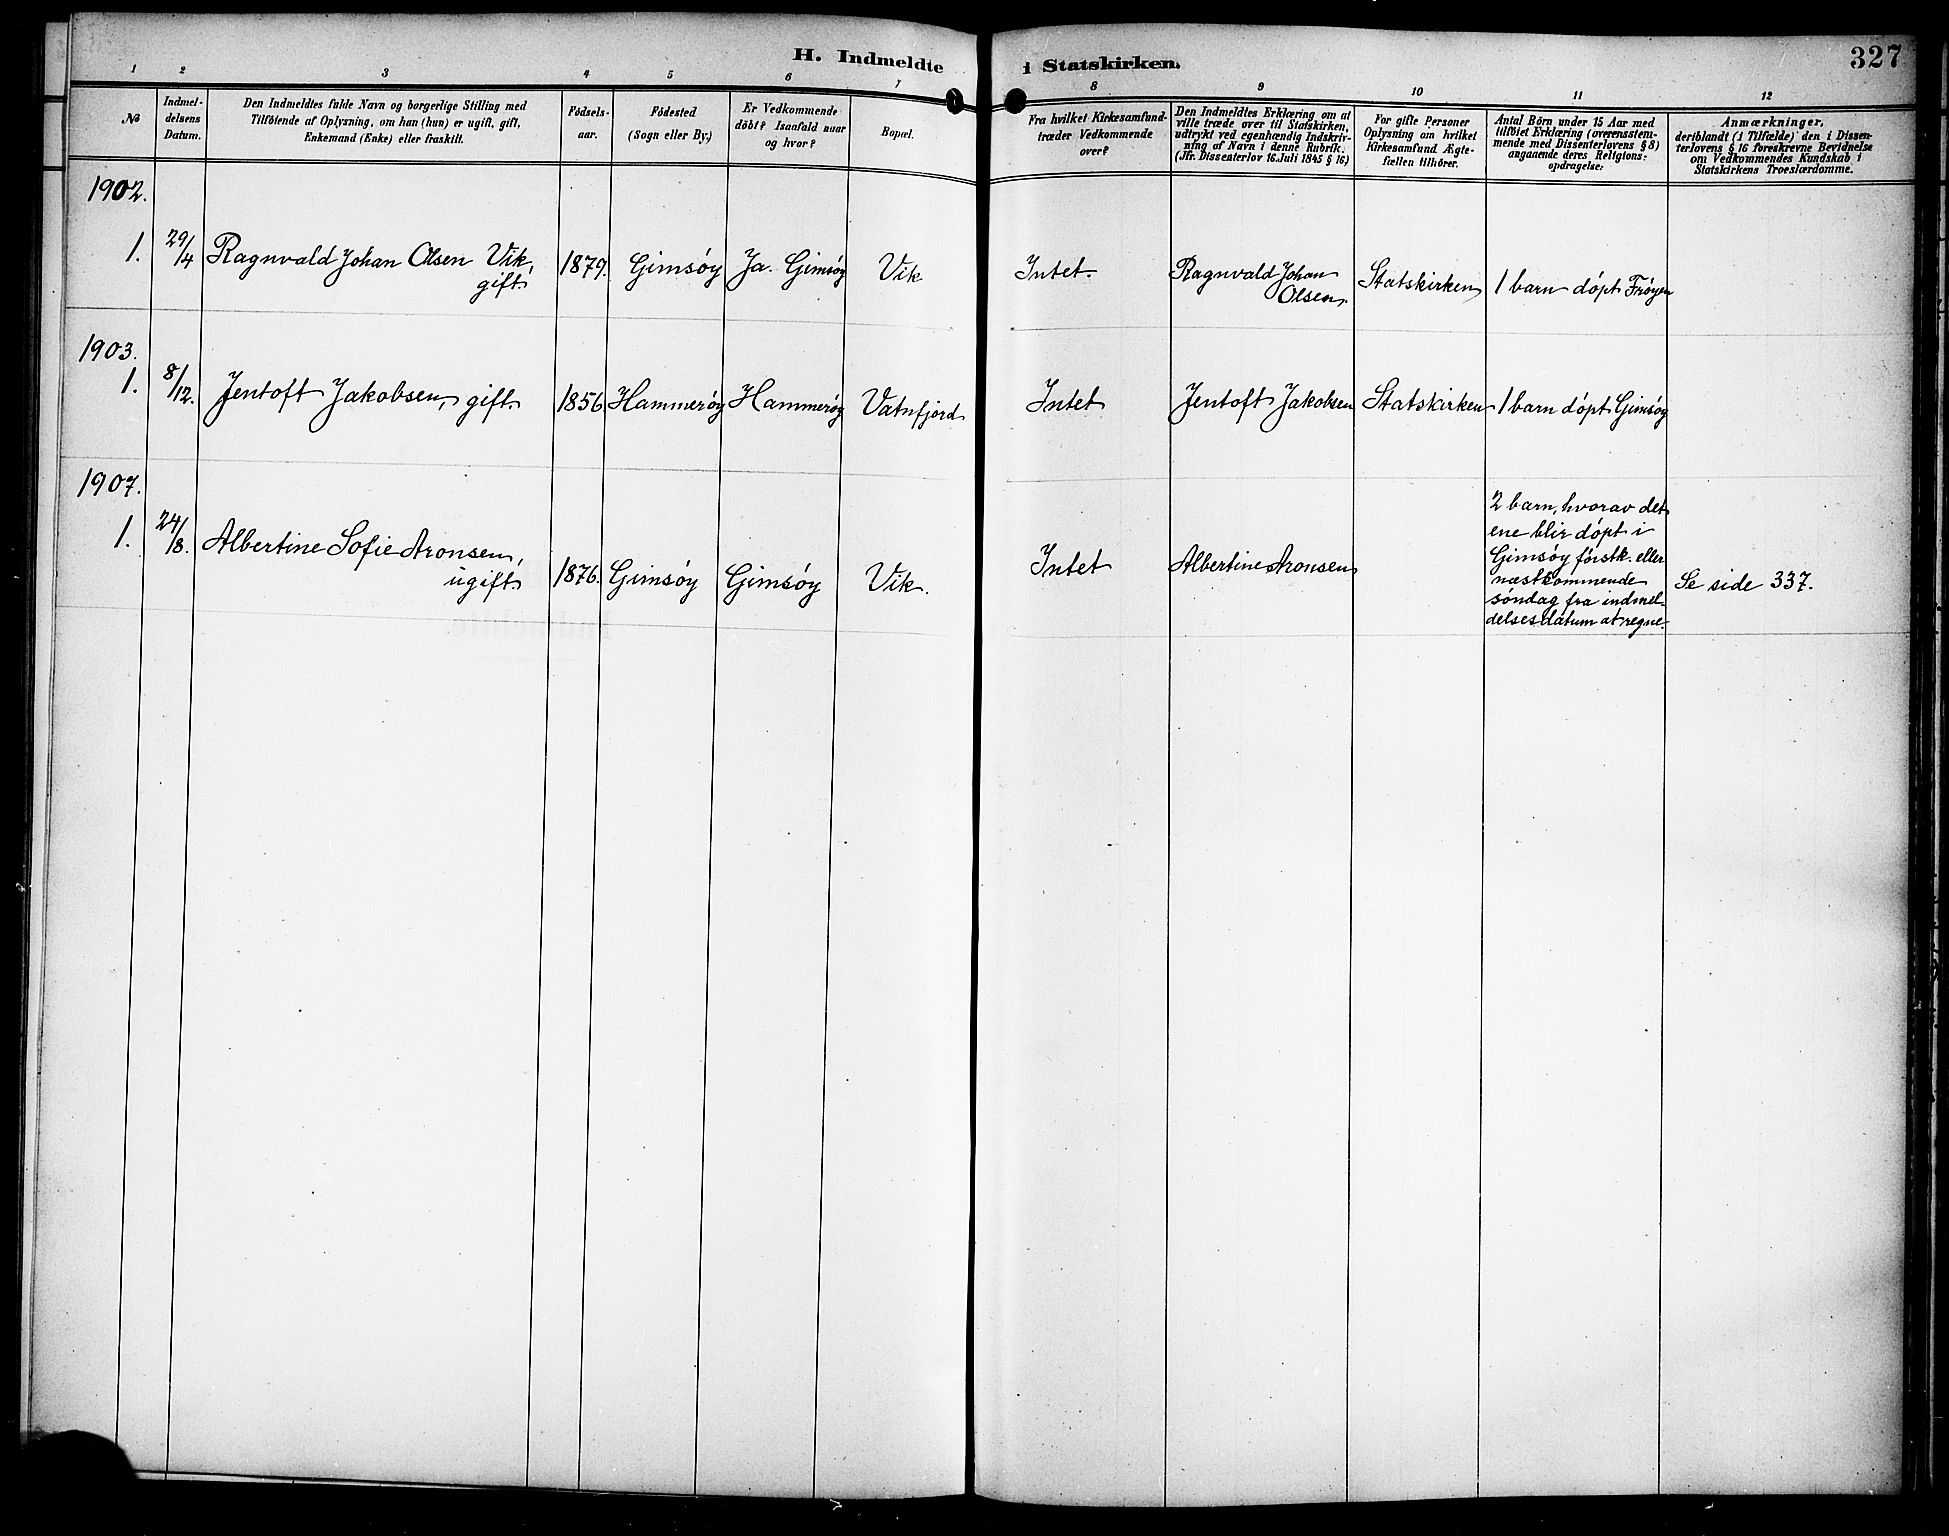 H. Indmeldte i Statskirken.
327
1 2 3 4 5 6 7 8 9 10 11 12
№
Indmel-
delsens
Datum.
Den Indmeldtes fulde Navn og borgerlige Stilling med
Tilföiende af Oplysning, om han (hun) er ugift, gift,
Enkemand (Enke) eller fraskilt.
Födsels-
aar.
Födested
(Sogn eller By.)
Er Vedkommende
döbt? Isaafald naar
og hvor?
Bopæl.
Fra hvilket Kirkesamfund-
træder Vedkommende
over?
Den Indmeldtes Erklæring om at
ville træde over til Statskirken,
udtrykt ved egenhændig Indskriv-
ning af Navn i denne Rubrik.
(Jfr. Dissenterlov 16. Juli 1845 § 16)
For gifte Personer
Oplysning om hvilket
Kirkesamfund Ægte-
fællen tilhörer.
Antal Börn under 15 Aar med
tilföiet Erklæring (overensstem-
mende med Dissenterlovens § 8)
angaaende deres Religions-
opdragelse:
Anmærkninger,
deriblandt (i Tilfælde) den i Dissen-
terlovens § 16 foreskrevne Bevidnelse
om Vedkommendes Kundskab i
Statskirkens Troeslærdomme.
1902.
1. 29/4 Ragnvald Johan Olsen Vik,
gift.
1879. Gimsøy Ja. Gimsøy Vik Intet. Ragnvald Johan
Olsen.
Statskirken 1 barn døpt Frøyen
1903.
1. 8/12. Jentoft Jakobsen, gift. 1856 Hammerøy Hammerøy Vatnfjord Intet Jentoft Jakobsen Statskirken 1 barn døpt Gimsøy
1907.
1. 24/8. Albertine Sofie Aronsen,
ugift.
1876. Gimsøy Gimsøy Vik. Intet Albertine Aronsen
2 barn, hvorav det
ene blir døpt i
Gimsøy førstk. eller
næstkommende
søndag fra indmel-
delsesdatum at regne.
Se side 337.